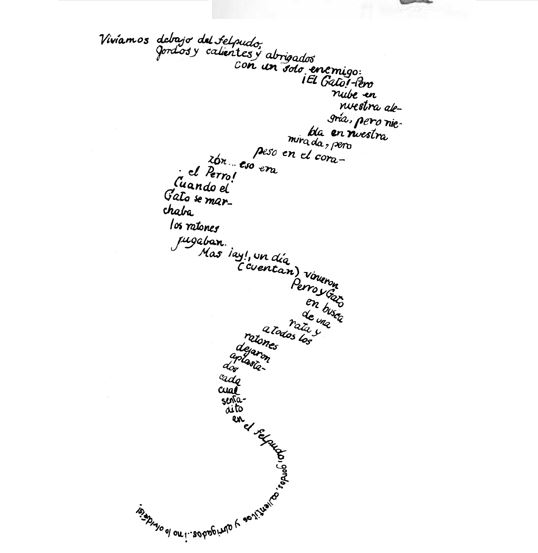 Vivíamos debajo del felpudo,
gordos y calientes y abrigados
con un solo enemigo:
¡El Gato! Pero
nube en
nuestra ale-
gría, pero nie-
bla en nuestra
mirada, pero
peso en el cora-
zón... eso era
el Perro!
Cuando el
Gato se mar-
chaba
los ratones
jugaban.
Mas ¡ay!, un día
(cuentan) vinieron
Perro y Gato
en busca
de una
rata y
a todos los
ratones
dejaron
aplasta-
dos
cada
cual
senta-
dito
en el felpudo, gordos, calientitos y abrigados. ¡no lo olvidéis!